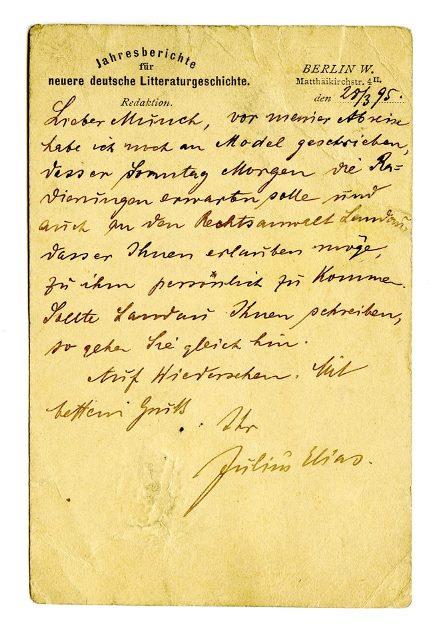 Jahresberichte
für
neuere deutsche Litteraturgeschichte.
Redaktion.
BERLIN W.
Matthäikirchstr. 4 II.
den 28/3 95.
Lieber Munch, vor meiner Abreise
habe ich noch an Model geschrieben,
dass er Sonntag Morgen die Ra-
dierungen erwarten solle und
auch an den Rechtsanwalt Landau,
dass er Ihnen erlauben möge,
zu ihm persönlich zu Kommen.
Sollte Landau Ihnen schreiben,
so gehen Sie gleich hin.
Auf Wiedersehen. Mit
bestem Gruß
Ihr
Julius Elias.